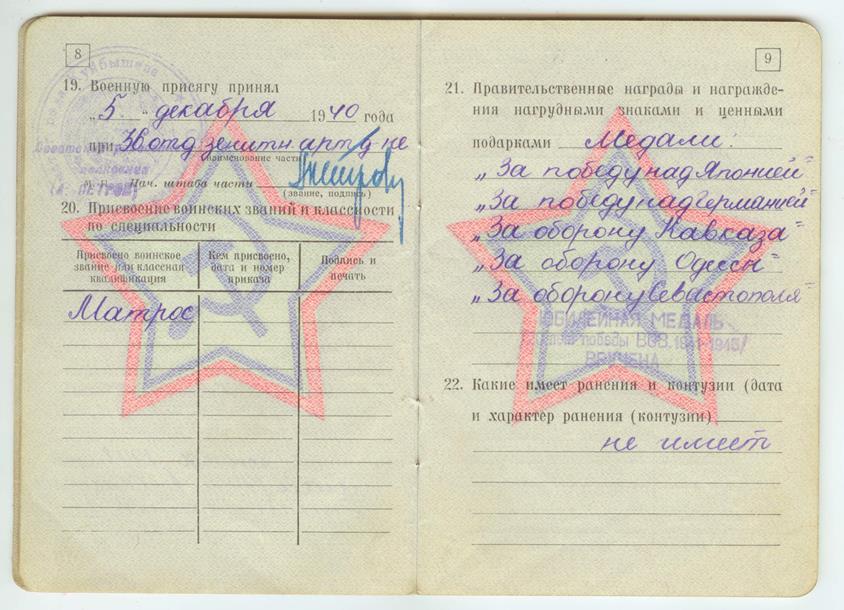 8
19. Военную присягу принял
„5" декабря 1940 года
при отд. зенитн. арт.
(наименование части)
Нач. штаба части
(звание, подпись)
(А. ПЕТРОВ)
20. Присвоение воинских званий и классности
по специальности
Присвоено воинское
звание или классная
квалификация
Кем присвоено,
дата и номер
приказа
Подпись и
печать
Матрос
9
21. Правительственные награды и награжде-
ния нагрудными знаками и ценными
подарками Медали:
„За победу над Японией"
„За победу над Германией"
„За оборону Кавказа"
„За оборону Одессы"
„За оборону Севастополя"
ЮБИЛЕЙНАЯ МЕДАЛЬ
победы ВОВ. 1941-1945/
ВРУЧЕНА
22. Какие имеет ранения и контузии (дата
и характер ранения (контузии)
не имеет